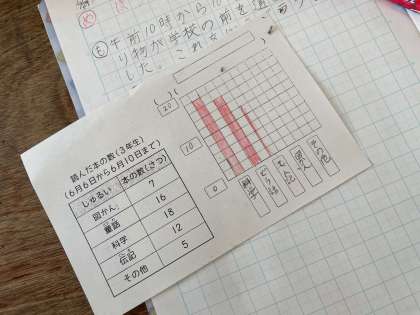 午前10時から10
り物が学校の前を通
した。
読んだ本の数(3年生)
(6月6日から6月10日まで)
しゅるい 本の数(さつ)
図かん 7
童話 16
科学 18
伝記 12
その他 5
( )( )
20
10
0
科学
どう話
でん記
図かん
その他